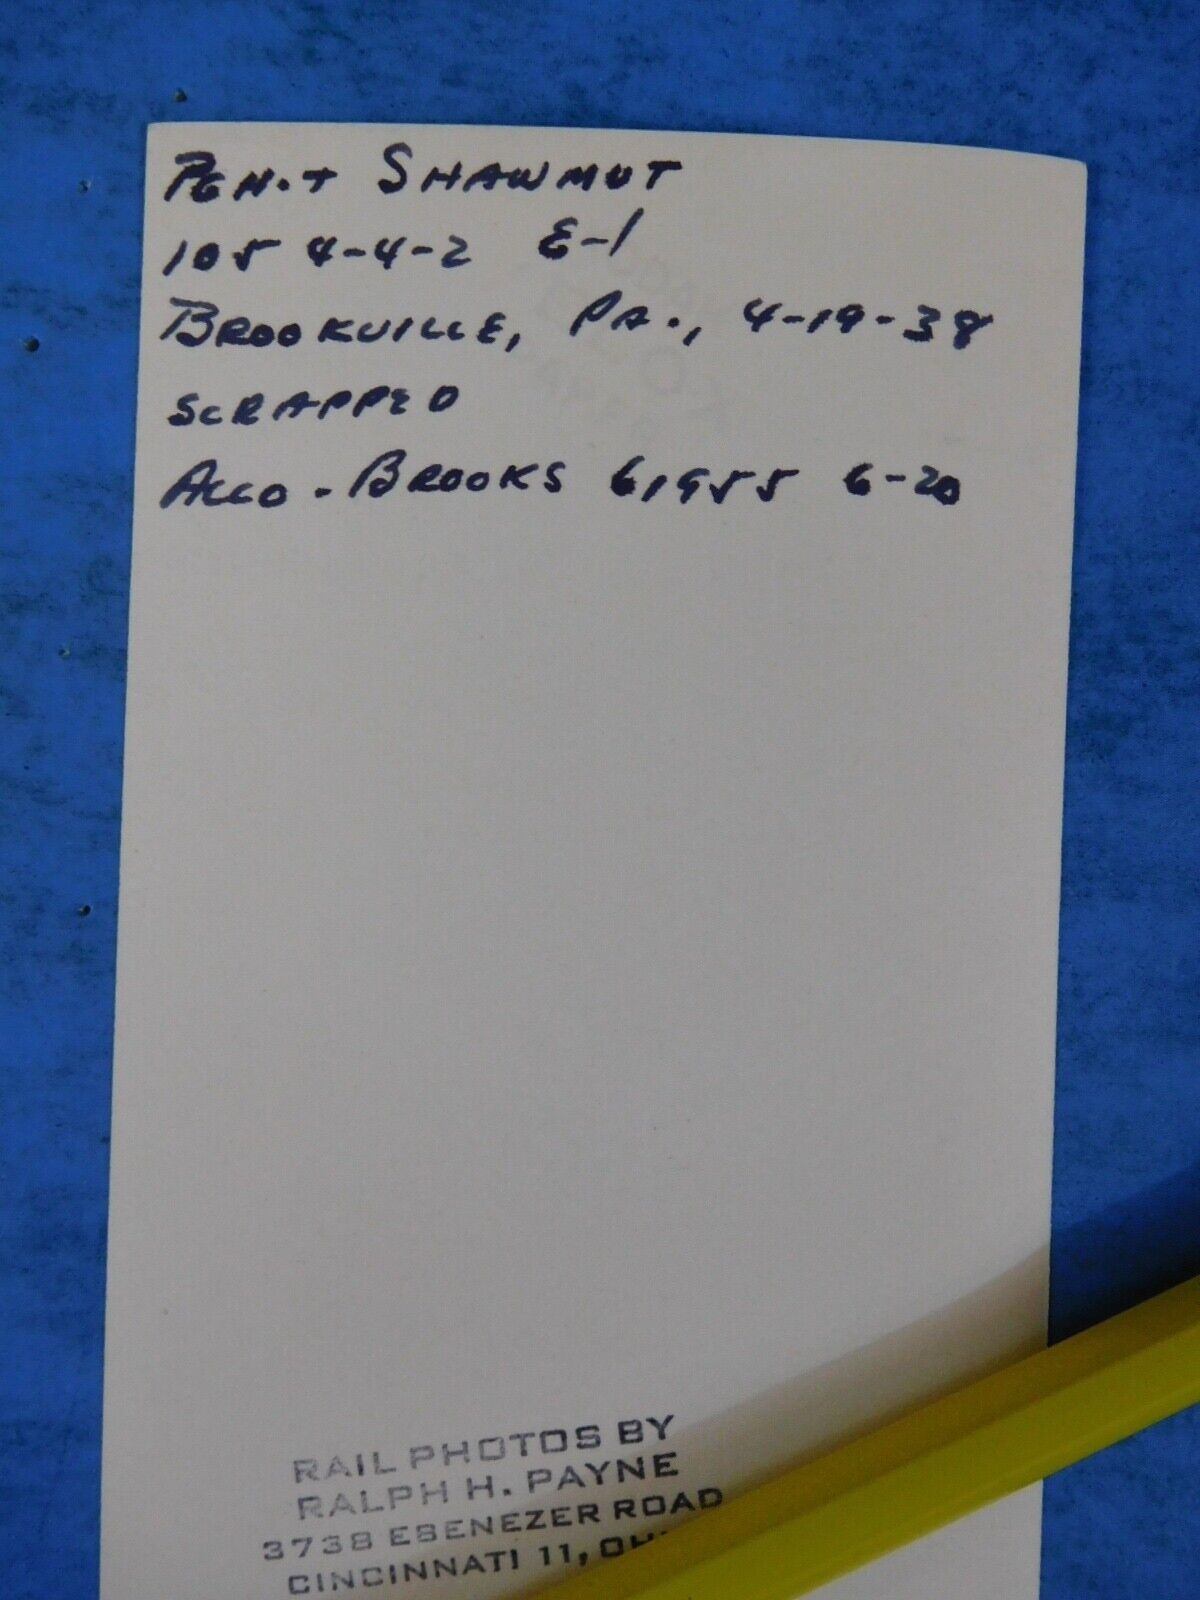 PGH. + SHAWMUT
105 4-4-2 E-1
BROOKVILLE, PA., 4-19-38
SCRAPPED
ALCO - BROOKS 61955 6-20
RAIL PHOTOS BY
RALPH H. PAYNE
3738 EBENEZER ROAD
CINCINNATI 11,